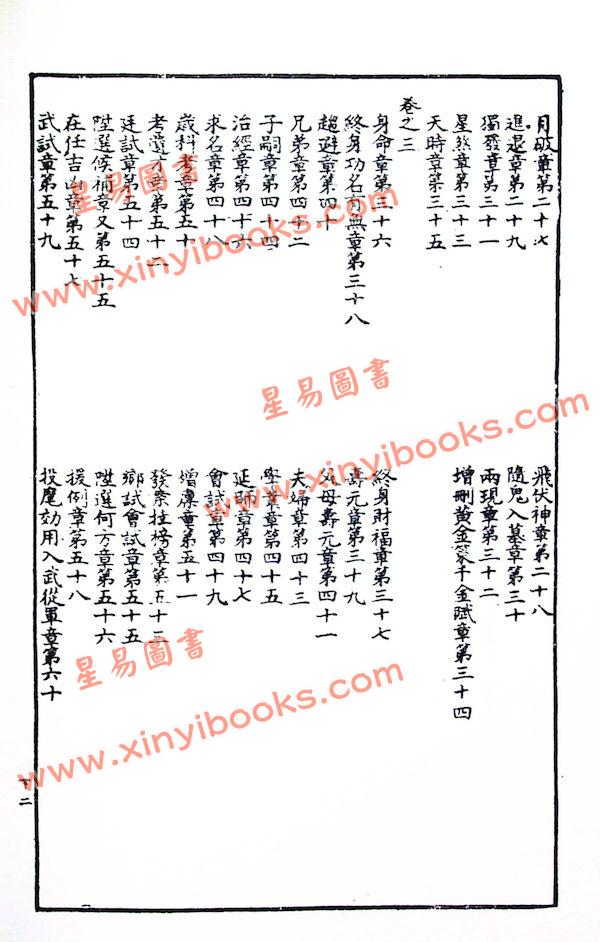 月破章第二十七
飛伏神章第二十八
進退章第二十九
隨鬼入墓章第三十
獨發章第三十一
兩現章第三十二
星煞章第三十三
增刪黃金篆千金賦章第三十四
天時章第三十五
卷之三
身命章第三十六
終身財福章第三十七
終身功名有無章第三十八
壽元章第三十九
趨避章第四十
父母壽元章第四十一
兄弟章第四十二
夫婦章第四十三
子嗣章第四十四
學業章第四十五
治經章第四十六
延師章第四十七
求名章第四十八
會試章第四十九
歲科考章第五十
增廩章第五十一
考遺才章第五十二
發案挂榜章第五十三
廷試章第五十四
鄉試會試章第五十五
陞選候補章又第五十五
陞選何方章第五十六
在任吉凶章第五十七
援例章第五十八
武試章第五十九
投麾効用入武從軍章第六十
下二
星易圖書
www.xinyibooks.com
星易圖書
www.xinyibooks.com
星易圖書
www.xinyibooks.com